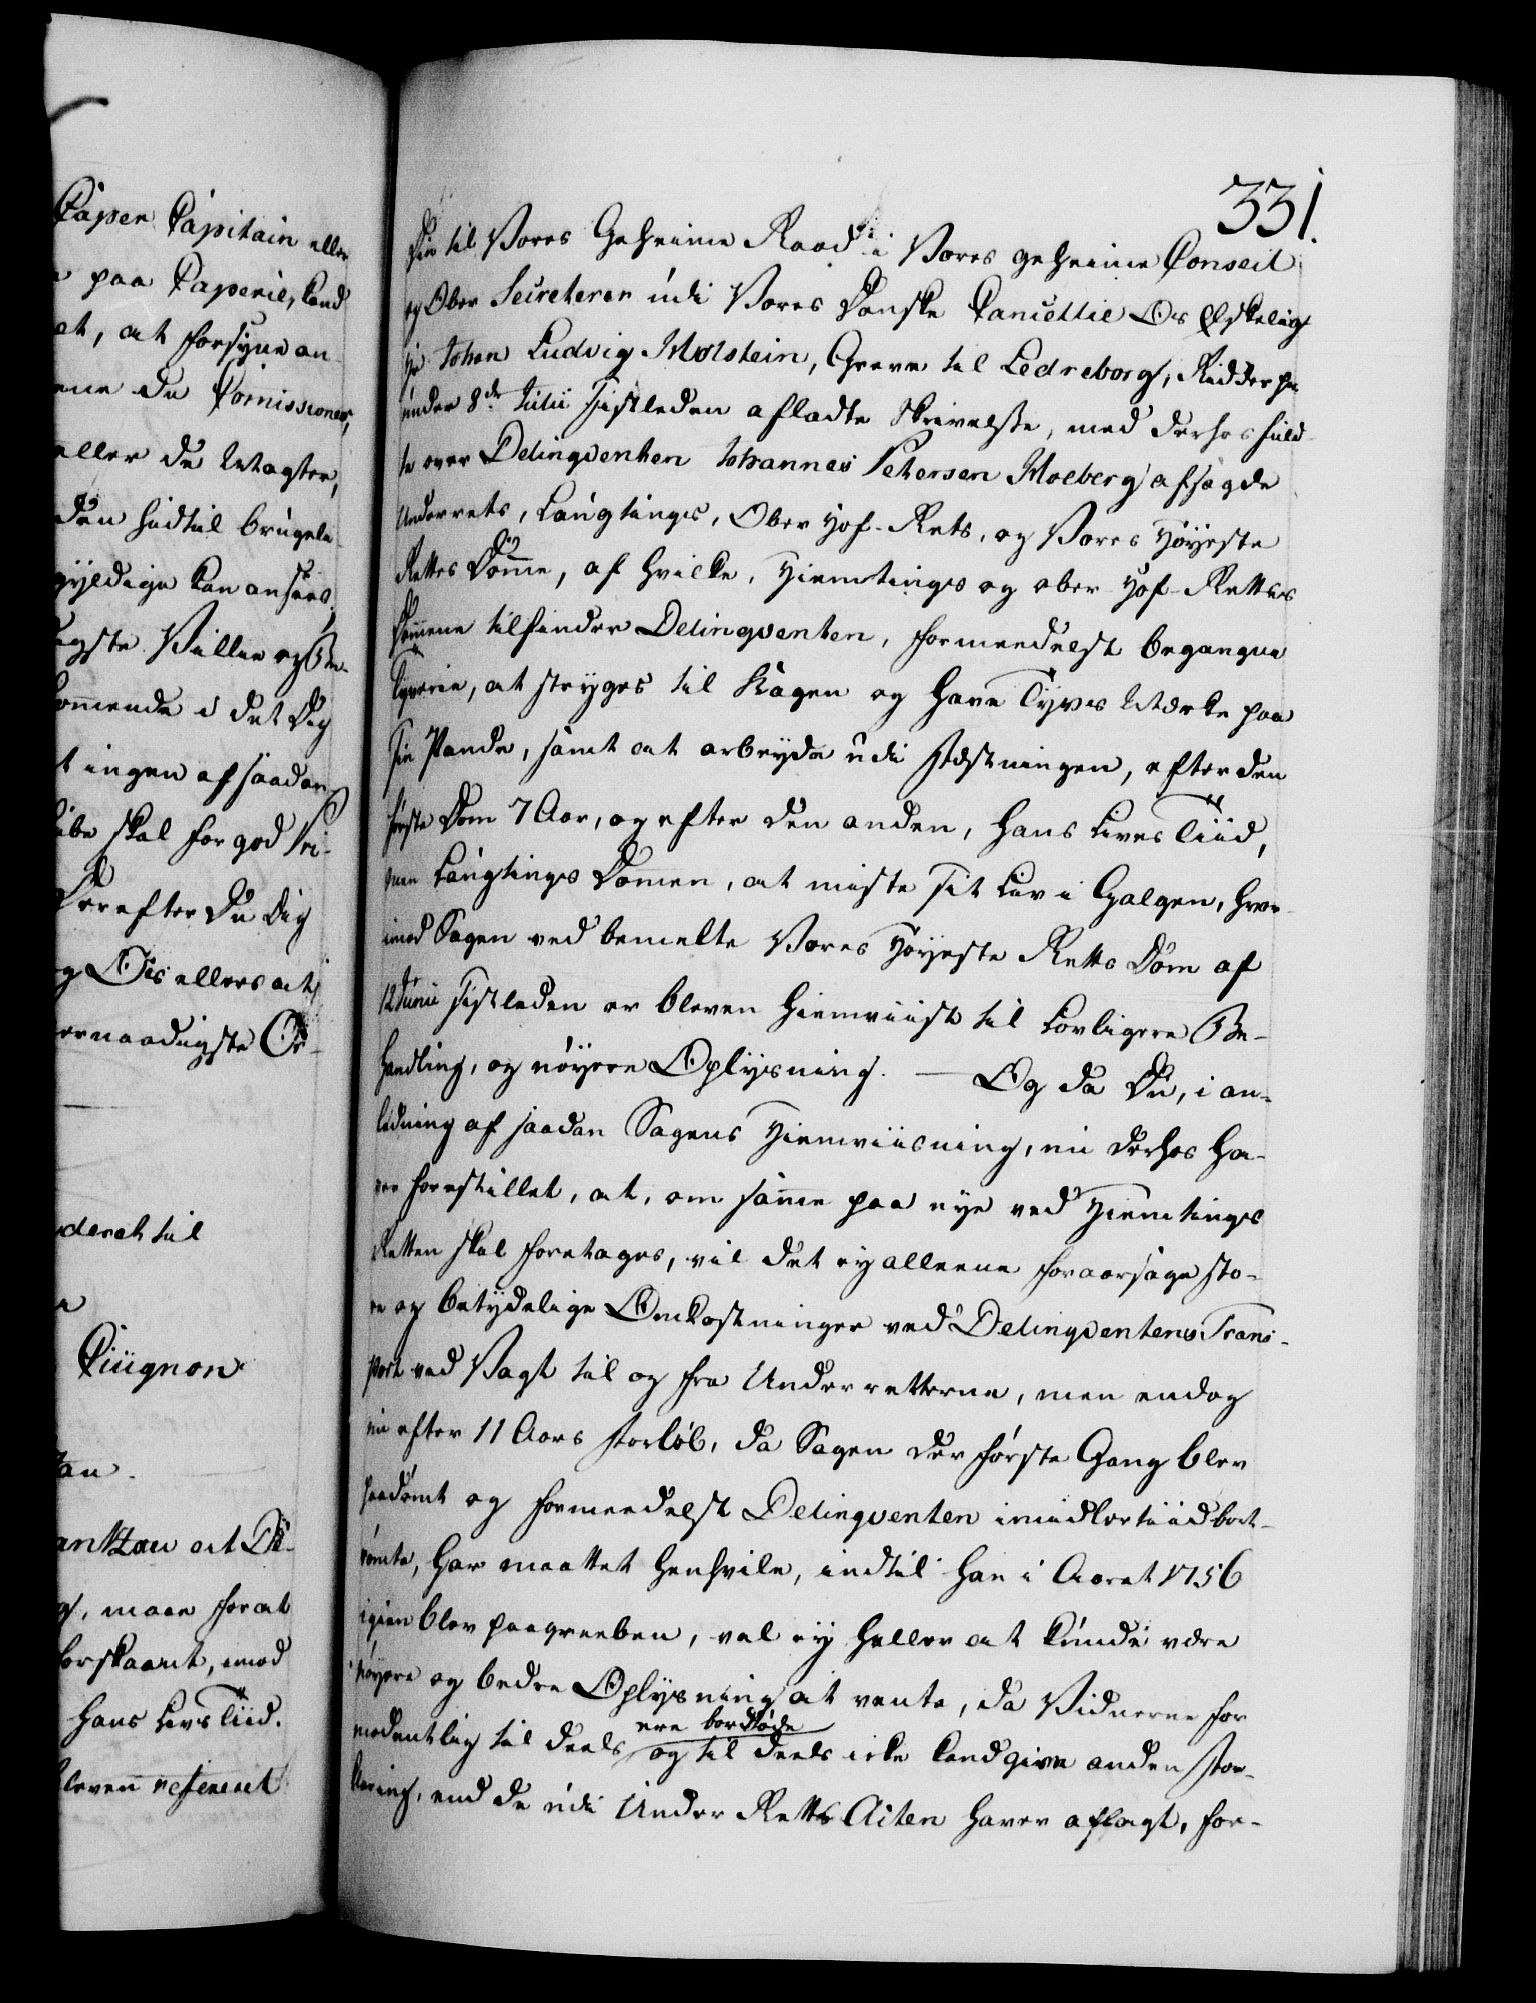 Caper Capitain eller
paa Caperie, kand
et, at forsyne an-
ene de Comissioner,
eller de Magter,
den hidtil brugeli-
gyldige kan ansees,
igste Villie og Be-
kommende i det Dig
t ingen af saadan
ibe skal for god Pri-
Derefter Du Dig
g Os ellers at
ernaadigste Or-
deret til
Cuignon
antzau at De-
maae for at
forskaant, imod
hans Livs Tiid.
bleven refereret
331.
Din til Vores Geheime Raad i Vores geheime Conseil
og Ober Secreterer udi Vores Danske Cancellie Os Elskelig
Hr Johan Ludvig Holstein, Greve til Ledreborg, Ridder pp
under 8de Julii sistleden afladte Skrivelse, med derhos fuld-
te over Delinqventen Johannes Petersen Moeberg afsagde
Underrets, Laugtings, Ober Hof-Rets, og Vores Høyeste
Rettes Domme, af hvilke, Hiemtings og ober Hof-Rettes
Dommene tilfinder Delinqventen, formedelst begangne
Tyverie, at stryges til Kagen og have Tyvs Mærke paa
sin Pande, samt at arbeyde udi Fæstningen, efter den
første Dom 7 Aar, og efter den anden, hans Livs Tiid,
men Laugtings Dommen, at miste sit Liv i Galgen, hvor-
imod Sagen ved bemelte Vores Høyeste Retts Dom af
12te Junii sistleden er bleven hiemviist til lovligere Be-
handling, og nøyere Oplysning. — Og da Du, i an-
ledning af saadan Sagens Hiemviisning, nu derhos ha-
ver forestillet, at, om samme paa nye ved Hiemtings
Retten skal foretages, vil det ey alleene foraarsage sto-
re og betydelige Omkostninger ved Delinqventens Trans-
port ved Vagt til og fra Underretterne, men endog
nu efter 11 Aars Forløb, da Sagen der første Gang blev
paadømt og formedelst Delinqventen imidlertiid bort-
rømte, har maattet henhvile, indtil han i Aaret 1756
igien blev paagreeben, vel ey heller at kunde være
nøyere og bedre Oplysning at vente, da Vidnerne for-
modentlig til deels ere bordtøde og til deels icke kand give anden For-
klaring, end de udi Under Retts Acten haver aflagt, for-